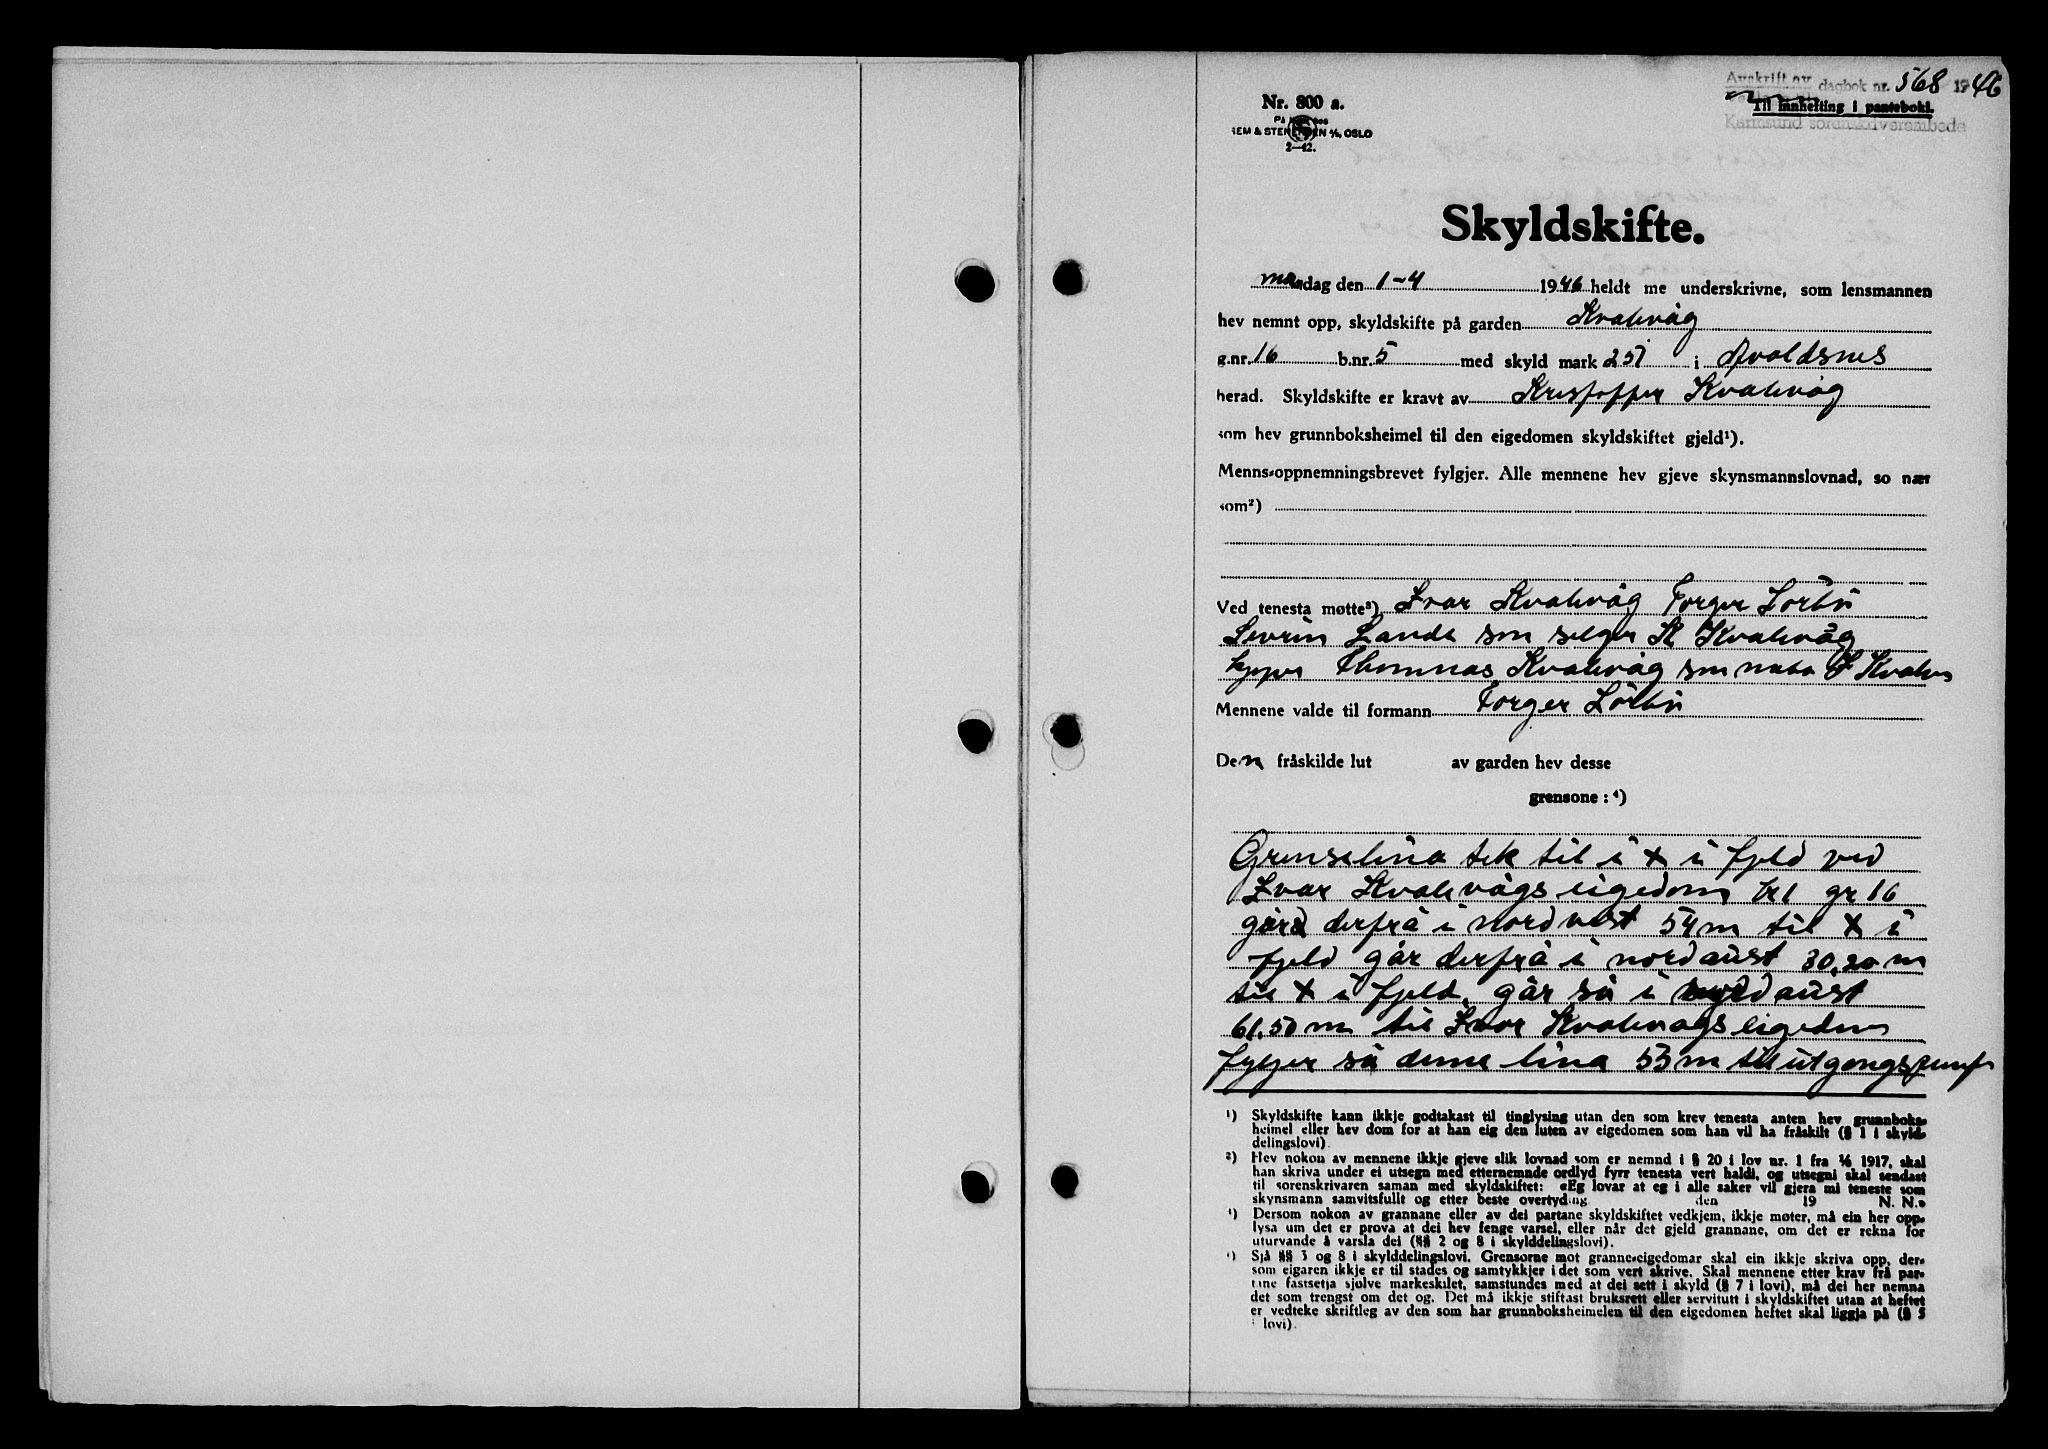 Avskrift av dagbok nr. 568 1946
Til innhefting i panteboki.
Karmsund sorenskriverembede
Nr. 800 a.
På lager hos
SEM & STENERSEN A/S, OSLO
2—42.
Skyldskifte.
mandag den 1-4 1946 heldt me underskrivne, som lensmannen
hev nemnt opp, skyldskifte på garden Kvalevåg
g.nr. 16 b.nr. 5 med skyld mark 257 i Avaldsnes
herad. Skyldskifte er kravt av Kristoffer Kvalevåg
som hev grunnboksheimel til den eigedomen skyldskiftet gjeld¹).
Menns-oppnemningsbrevet fylgjer. Alle mennene hev gjeve skynsmannslovnad, so nær
som²)
Ved tenesta møtte³) Ivar Kvalevåg Torger Lörbu
Sevrin Lande som selger K Kvalevåg
kjøper Thommas Kvalevåg som nabo I Kvalev
Mennene valde til formann Torger Lörbu
Den fråskilde lut av garden hev desse
grensone: ⁴)
Grenselina tek til i x i fjeld ved
Ivar Kvalevågs eigedom br 1 gr 16
går derfrå i nordvest 54 m til x i
fjeld går derfrå i nordaust 30,20 m
til x i fjeld. går så i aust
61.50 m til Ivar Kvalevågs eigedom
fylgjer så denne lina 53 m til utgongspunf
¹) Skyldskifte kann ikkje godtakast til tinglysing utan den som krev tenesta anten hev grunnboks-
heimel eller hev dom for at han eig den luten av eigedomen som han vil ha fråskilt (§ 1 i skyld-
delingslovi).
²) Hev nokon av mennene ikkje gjeve slik lovnad som er nemnd i § 20 i lov nr. 1 fra 1/6 1917, skal
han skriva under ei utsegn med etternemnde ordlyd fyrr tenesta vert haldi, og utsegni skal sendast
til sorenskrivaren saman med skyldskiftet: «Eg lovar at eg i alle saker vil gjera mi teneste som
skynsmann samvitsfullt og etter beste overtyding. den 19 N. N.»
³) Dersom nokon av grannane eller av dei partane skyldskiftet vedkjem, ikkje møter, må ein her opp-
lysa um det er prova at dei hev fenge varsel, eller når det gjeld grannane, om det er rekna for
uturvande å varsla dei (§§ 2 og 8 i skylddelingslovi).
⁴) Sjå §§ 3 og 8 i skylddelingslovi. Grensorne mot granne-eigedomar skal ein ikkje skriva opp, der-
som eigaren ikkje er til stades og samtykkjer i det som vert skrive. Skal mennene etter krav frå par-
tane fastsetja sjølve markeskilet, samstundes med at dei sett i skyld (§ 7 i lovi), må dei her nemna
det som trengst om det og. Det må ikkje stiftast bruksrett eller servitutt i skyldskiftet utan at heftet
er vedteke skriftleg av den som har grunnboksheimelen til den eigedomen heftet skal liggja på (§ 5
i lovi).